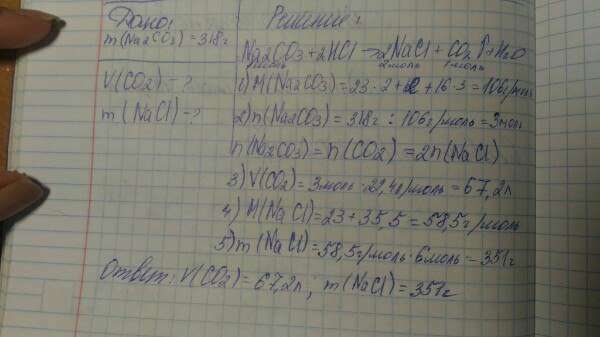 Дано:
m(Na2CO3)=318г
V(CO2)-?
m(NaCl)-?
Решение:
Na2CO3+2HCl→2NaCl+CO2↑+H2O
2моль 1моль
1) M(Na2CO3)=23·2+12+16·3=106г/моль
2) n(Na2CO3)=318г:106г/моль=3моль
n(Na2CO3)=n(CO2)=2n(NaCl)
3) V(CO2)=3моль·22,4л/моль=67,2л
4) M(NaCl)=23+35,5=58,5г/моль
5) m(NaCl)=58,5г/моль·6моль=351г
Ответ: V(CO2)=67,2л; m(NaCl)=351г